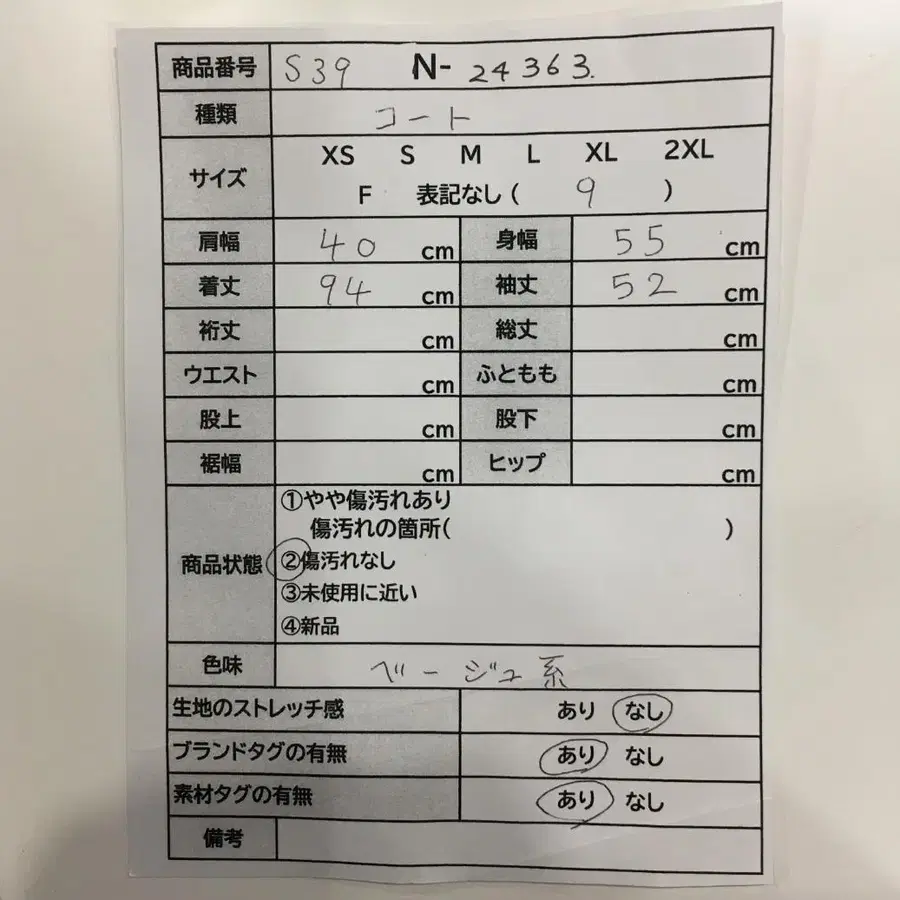 商品番号 S39 N-24363.
種類 コート
サイズ XS S M L XL 2XL
F 表記なし( 9 )
肩幅 40 cm 身幅 55 cm
着丈 94 cm 袖丈 52 cm
裄丈 cm 総丈 cm
ウエスト cm ふともも cm
股上 cm 股下 cm
裾幅 cm ヒップ cm
商品状態
①やや傷汚れあり
傷汚れの箇所( )
②傷汚れなし
③未使用に近い
④新品
色味 ベージュ系
生地のストレッチ感 あり なし
ブランドタグの有無 あり なし
素材タグの有無 あり なし
備考